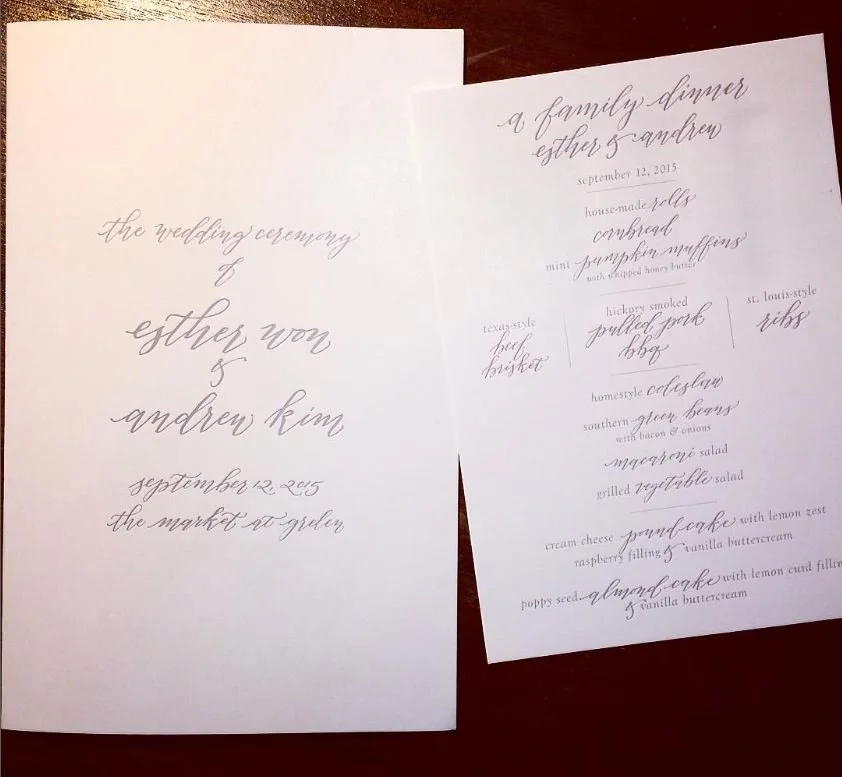 the wedding ceremony
of
esther won
&
andrew kim
september 12, 2015
the market at grelen
a family dinner
esther & andrew
september 12, 2015
house-made rolls
cornbread
mini pumpkin muffins
with whipped honey butter
texas-style
beef
brisket
hickory smoked
pulled pork
bbq
st. louis-style
ribs
homestyle coleslaw
southern green beans
with bacon & onions
macaroni salad
grilled vegetable salad
cream cheese pound cake with lemon zest
raspberry filling & vanilla buttercream
poppy seed almond cake with lemon curd fillin
& vanilla buttercream